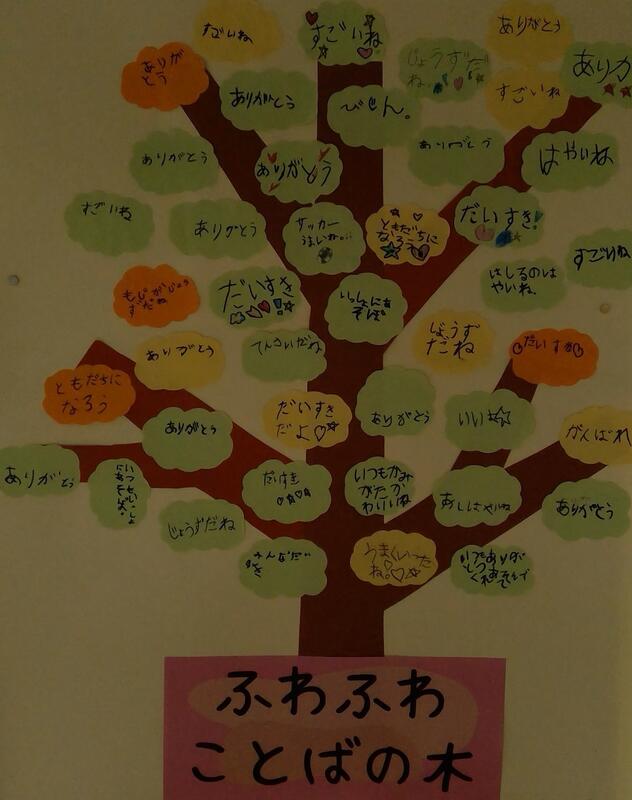 すごいね
すごいね
ありがとう
ありが
とう
じょうずだ
ね。
ありが
ありがとう
びじん。
すごいね
ありがとう
ありがとう
ありがとう
はやいね
すごいね
ありがとう
サッカー
うまいね。
ともだちに
なろう
だいすき!
はしるのは
やいね。
すごいね
もじがじょう
ずだね
だいすき!
いっしょに
あそぼ
ありがとう
てんさいだね
じょうず
だね
だいすき
ともだちに
なろう
ありがとう
だいすき
だよ
ありがとう
いい
がんばれ
ありがとう
だいすき
いつもかみ
がたっ
わいいね
あしはやいね
ありがとう
じょうずだね
みんなだい
すき
うまくいった
ね。
ふわふわ
ことばの木